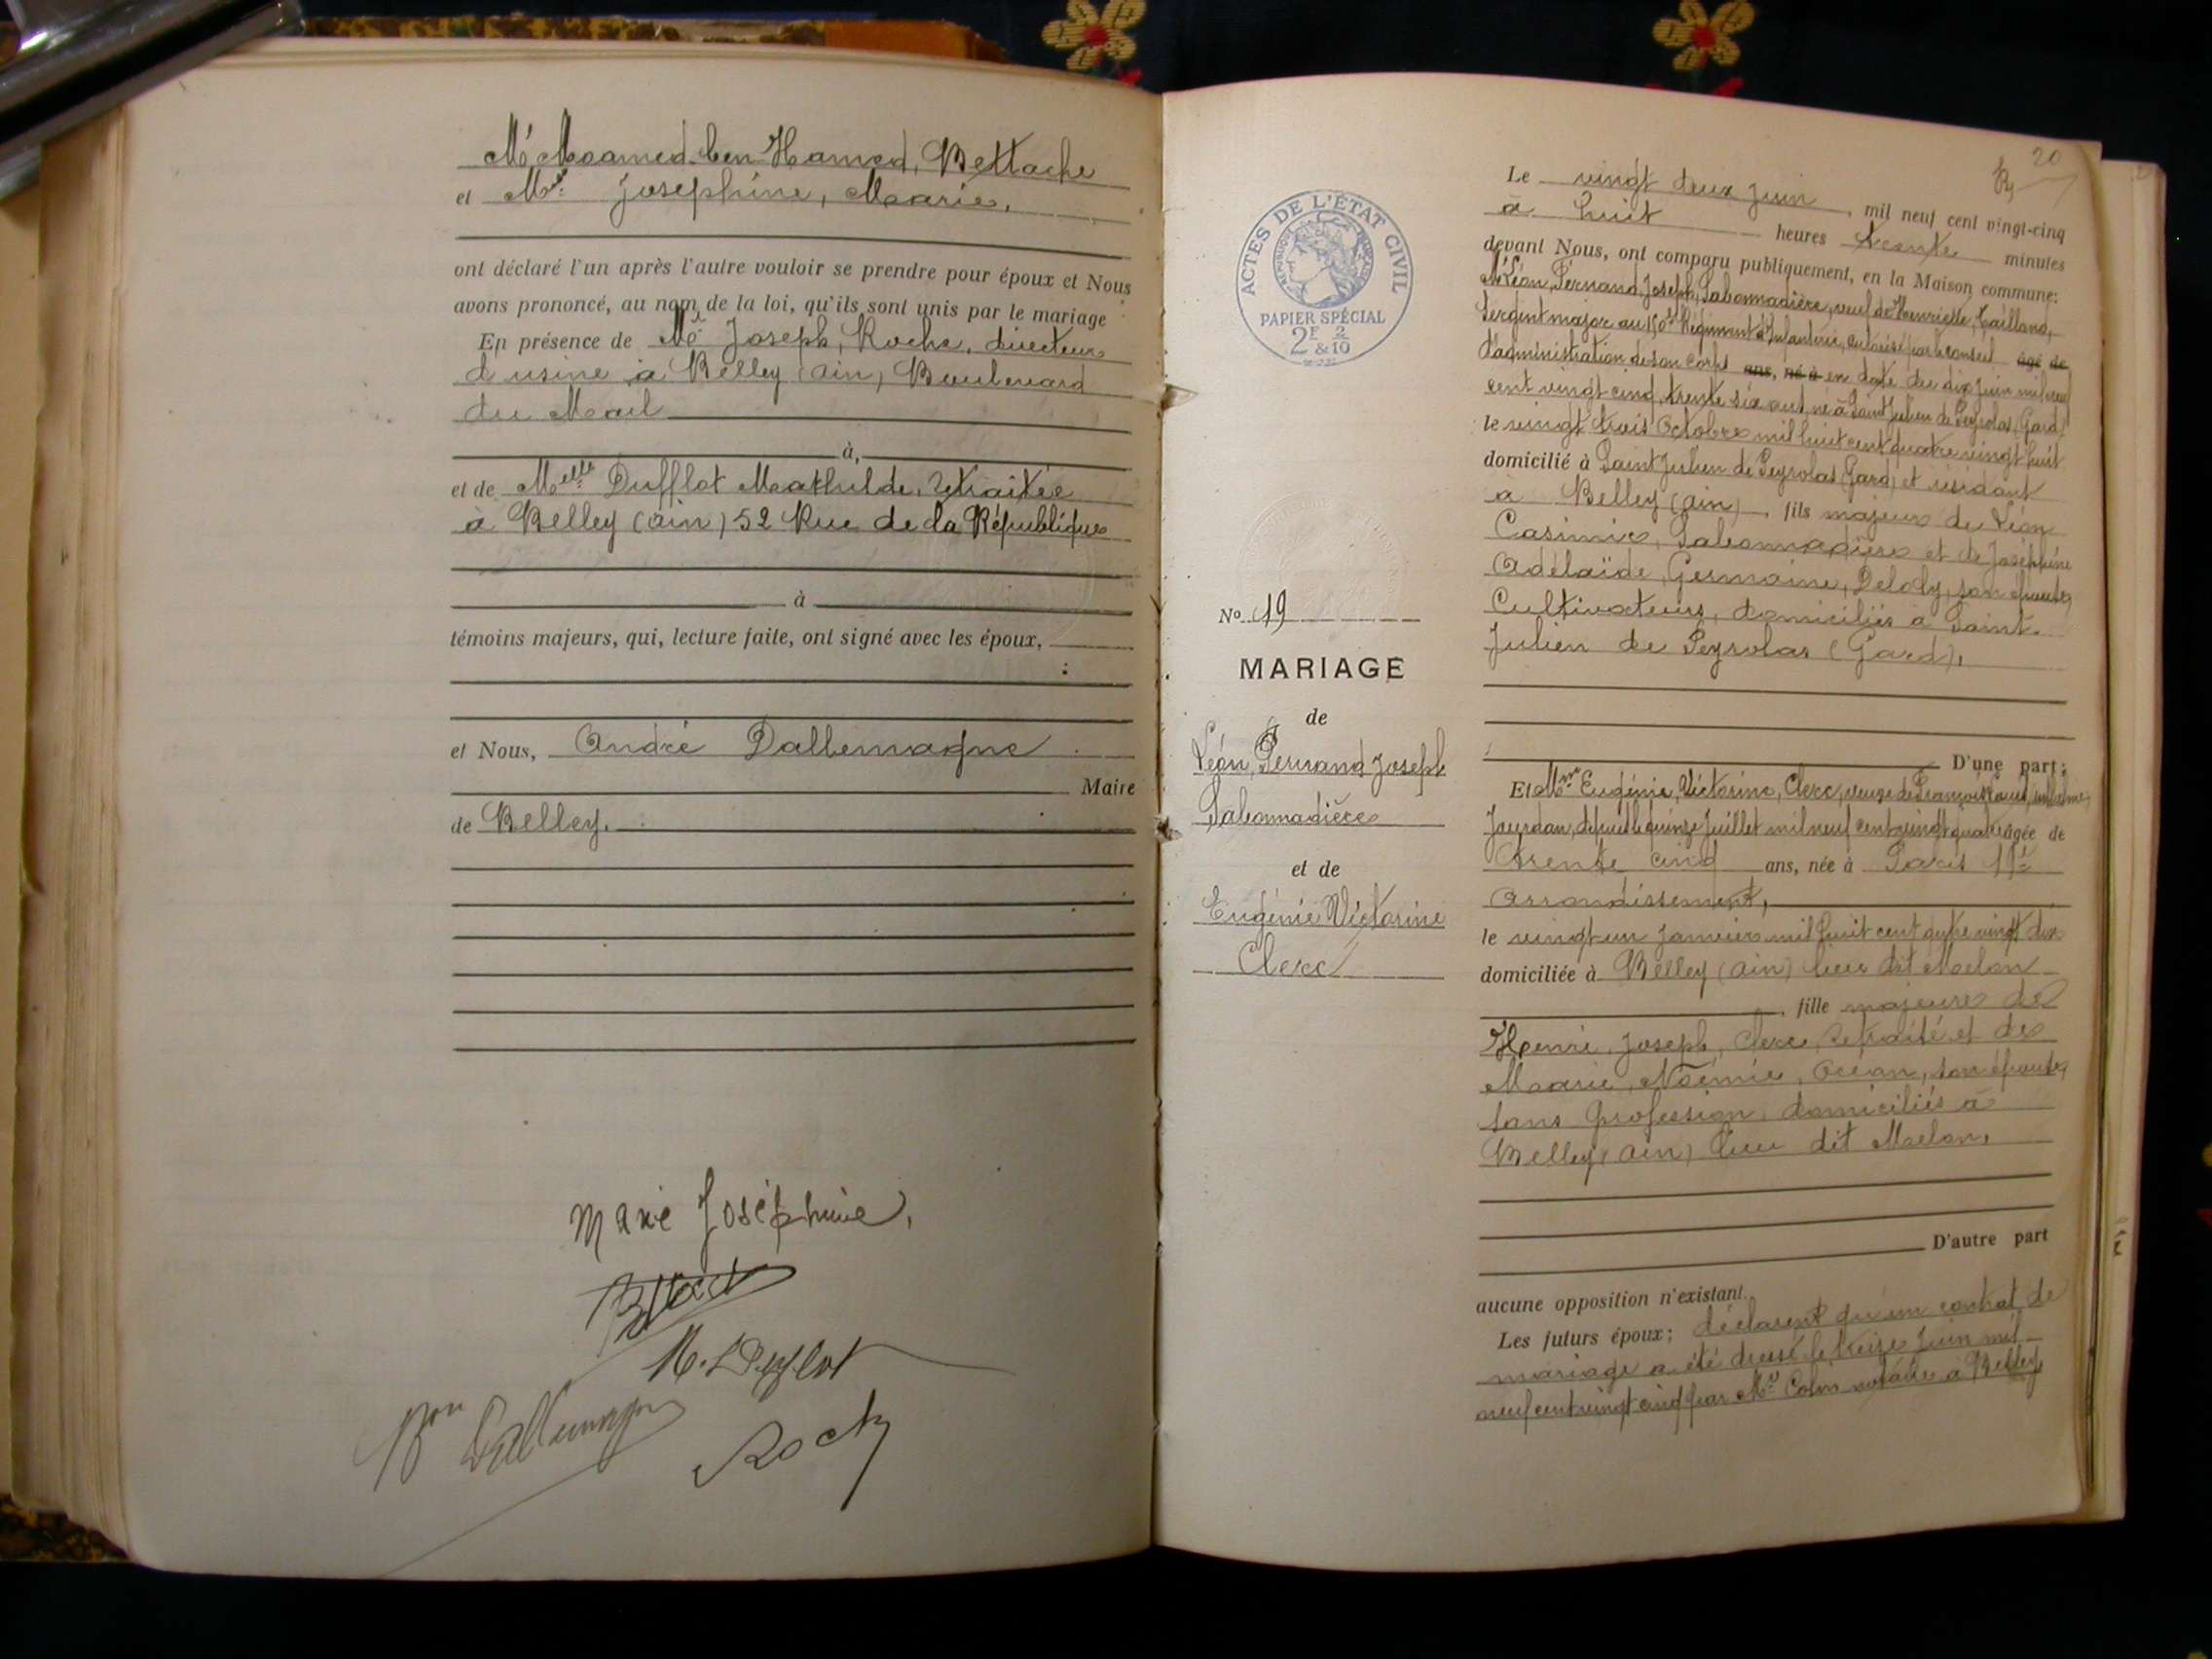 Mr Moamed ben Hamed, Bettache
et Mme Joséphine, Marie,
ont déclaré l'un après l'autre vouloir se prendre pour époux et Nous
avons prononcé, au nom de la loi, qu'ils sont unis par le mariage
En présence de Mr Joseph, Roche, directeur
d'usine à Belley (Ain) Boulevard
du Mail
à,
et de Melle Dufflot Mathilde, retraitée
à Belley (Ain) 52 Rue de la République
à
témoins majeurs, qui, lecture faite, ont signé avec les époux,
et Nous, André Dallemagne
Maire
de Belley.
Marie Joséphine,
M. Dufflot
Bon Dallemagne
Roche
20
ACTES DE L'ÉTAT CIVIL
RÉPUBLIQUE FRANÇAISE
PAPIER SPÉCIAL
2F 2
&10
No 19
MARIAGE
de
Léon, Fernand Joseph
Sabonnadière
et de
Eugénie Victorine
Clerc
Le vingt deux Juin, mil neuf cent vingt-cinq
à huit heures trente minutes
devant Nous, ont comparu publiquement, en la Maison commune:
Mr Léon, Fernand, Joseph, Sabonnadière, veuf de Henriette, Tailland,
Sergent major au Régiment d'Infanterie, autorisé par le conseil âgé de
d'administration de son corps ans, né à en date du dix juin mil neuf
cent vingt cinq, trente six ans, né à Saint Julien de Peyrolas (Gard)
le vingt trois Octobre mil huit cent quatre vingt huit
domicilié à Saint Julien de Peyrolas (Gard) et résidant
à Belley (Ain), fils majeur de Léon
Casimir, Sabonnadière et de Joséphine
Adélaïde, Germaine, Deloly, son épouse,
Cultivateurs, domiciliés à Saint
Julien de Peyrolas (Gard),
D'une part;
Et Mme Eugénie, Victorine, Clerc, veuve de François Louis
Jourdan, depuis le quinze Juillet mil neuf cent vingt quatre âgée de
trente cinq ans, née à Paris
Arrondissement,
le vingt un Janvier mil huit cent quatre vingt dix
domiciliée à Belley (Ain) lieu dit Melon
, fille majeure de
Henri, Joseph, Clerc, retraité et de
Marie, Noémie, Océan, son épouse,
sans profession, domiciliés à
Belley (Ain) lieu dit Melon,
D'autre part
aucune opposition n'existant.
Les futurs époux; déclarent qu'un contrat de
mariage a été dressé le treize Juin mil
neuf cent vingt cinq par Me Colin notaire à Belley